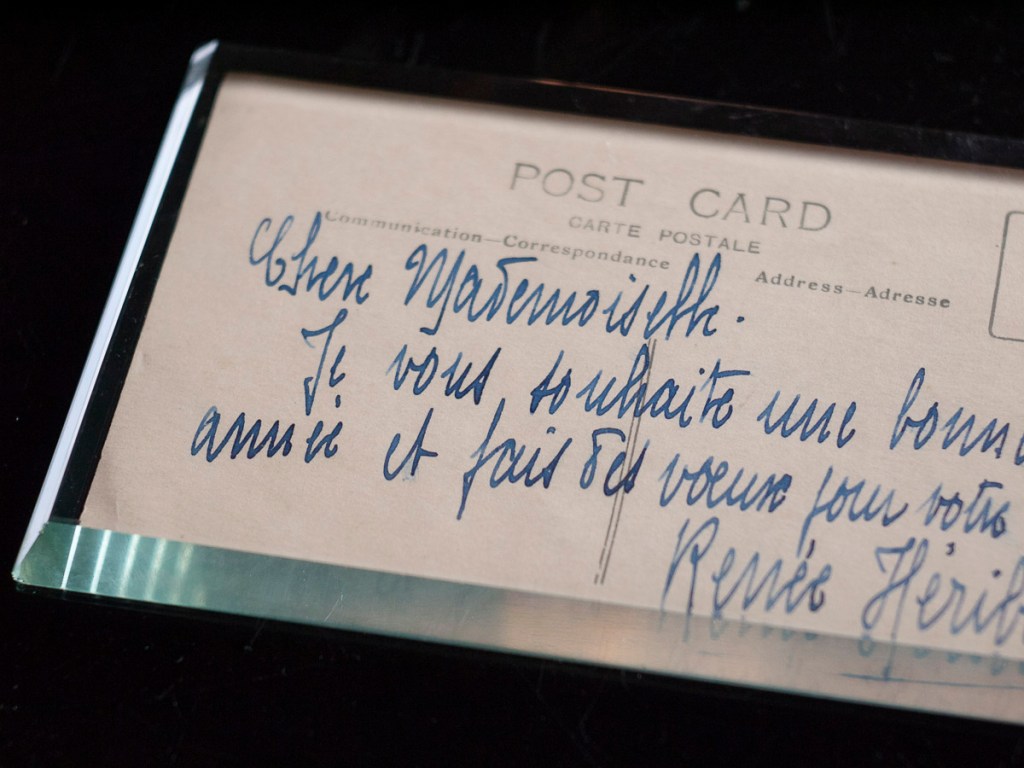 POST CARD
CARTE POSTALE
Communication—Correspondance
Address—Adresse
Chere Mademoiselle.
Je vous souhaite une bonne
année et fais des voeux pour votre
Renée